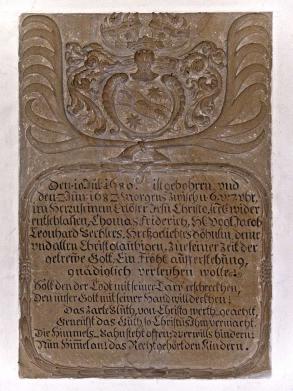 Den 19 Jul. 1680. ist gebohren und
den Jun. 1682 Morgens zwischen 6 u 7 Uhr,
im Herren seinem Erlöser Jesu Christo, seel: wider
entschlaffen, Thomas Friderich, H: Vogt Jacob
Leonhard Hertzgeliebtes Söhnlin, deme
und allen Christglaubigen, zu seiner Zeit der
getrewe Gott, Ein Fröhl: aufferstehung,
gnädiglich verleyhen wolle.
Solt den der Todt mit seiner Larv erschreckhen,
Den unser Gott mit seiner Hand will deckhen:
Das zarte Blüth, von Christo werth geacht,
Geneüßt das Christus Ihm vermacht.
Die Himmels-Bahn steht offen: Wer wils hindern:
Nun Himel an! das Recht gehört den Kindern.